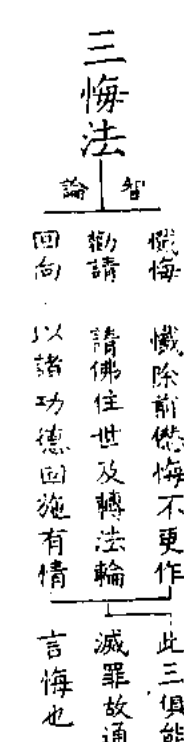 三悔法
智論
懺悔 懺除前愆悔不更作
勸請 請佛住世及轉法輪
回向 以諸功德回施有情
此三俱能
滅罪故通
言悔也